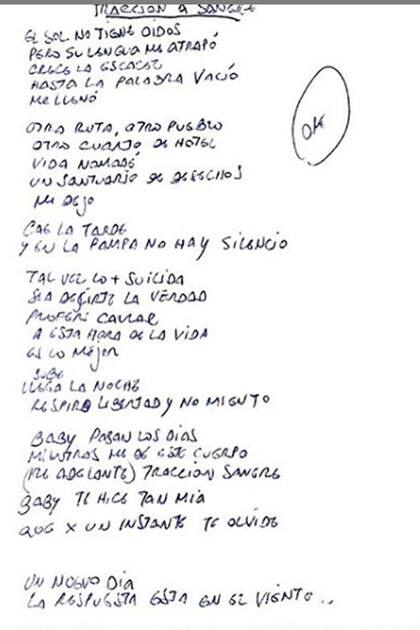 TRACCION A SANGRE
EL SOL NO TIENE OIDOS
PERO SU LENGUA ME ATRAPÓ
CRECE LA ESCASEZ
HASTA LA PALABRA VACIÓ
ME LLENÓ
OTRA RUTA, OTRO PUEBLO
OTRO CUARTO DE HOTEL
VIDA NOMADE
UN SANTUARIO DE DESECHOS
ME DEJO
CAE LA TARDE
Y EN LA PAMPA NO HAY SILENCIO
TAL VEZ LO + SUICIDA
SEA DECIRTE LA VERDAD
PREFERI CALLAR
A ESTA HORA DE LA VIDA
ES LO MEJOR
SUBE
LLEGA LA NOCHE
RESPIRO LIBERTAD Y NO MIENTO
BABY PASAN LOS DIAS
MIENTRAS ME DE ESTE CUERPO
(IRE ADELANTE) TRACCION SANGRE
BABY TE HICE TAN MIA
QUE X UN INSTANTE TE OLVIDE
UN NUEVO DIA
LA RESPUESTA ESTA EN EL VIENTO...